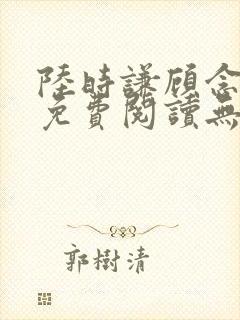 陸時謙顧念
免費閱讀無
郭樹清